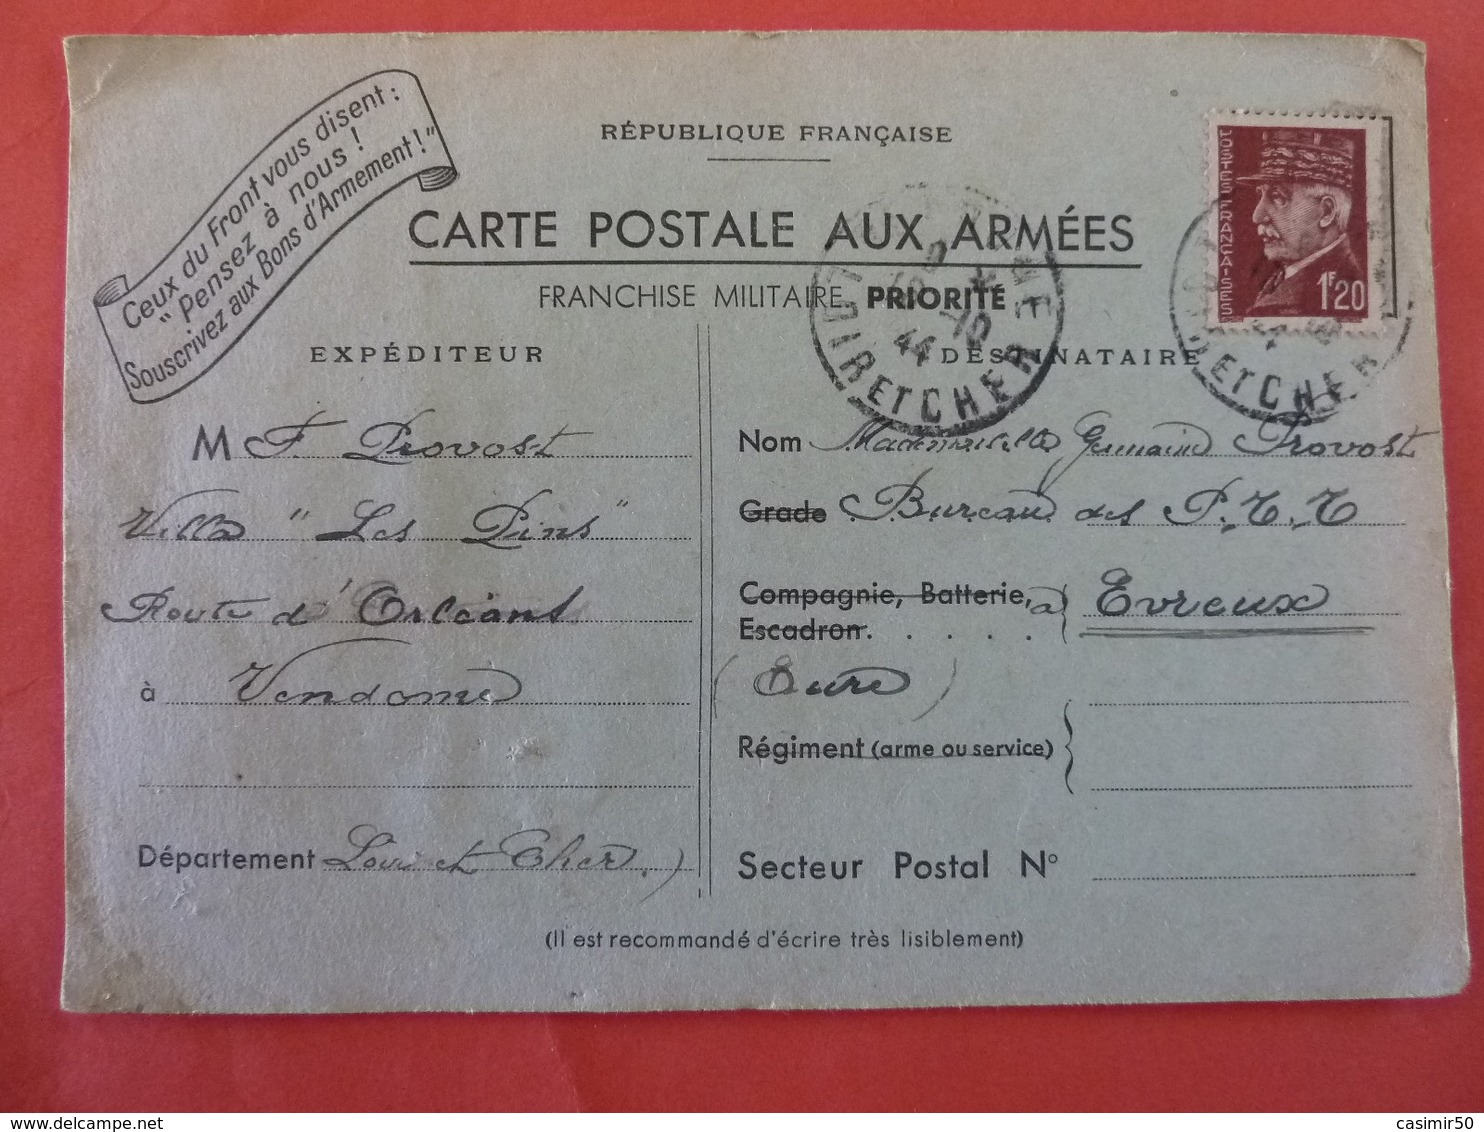 Ceux du Front vous disent :
" Pensez à nous !
Souscrivez aux Bons d'Armement ! "
RÉPUBLIQUE FRANÇAISE
CARTE POSTALE AUX ARMÉES
FRANCHISE MILITAIRE PRIORITÉ
POSTES FRANÇAISES
1F20
44
LOIR ET CHER
ET CHER
EXPÉDITEUR
M F. Provost
Villa " Les Pins "
Route d'Orléans
à Vendome
Département Loir et Cher.)
DESTINATAIRE
Nom Mademoiselle Germaine Provost
Grade Bureau des P.T.T
Compagnie, Batterie, à Evreux
Escadron.....
( Eure )
Régiment (arme ou service)
Secteur Postal N°
(Il est recommandé d'écrire très lisiblement)
casimir50